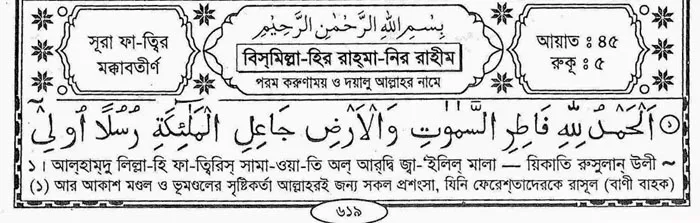 بِسْمِ اللهِ الرَّحْمٰنِ الرَّحِيْمِ
সূরা ফা-ত্বির
মক্কাবতীর্ণ
বিস্‌মিল্লা-হির রাহ্‌মা-নির রাহীম
পরম করুণাময় ও দয়ালু আল্লাহর নামে
আয়াত : ৪৫
রুকূ : ৫
اَلْحَمْدُ لِلّٰهِ فَاطِرِ السَّمٰوٰتِ وَالْاَرْضِ جَاعِلِ الْمَلٰٓئِكَةِ رُسُلًا اُولِىْٓ
১। আল্‌হাম্‌দু লিল্লা-হি ফা-ত্বিরিস্ সামা-ওয়া-তি অল্ আর্‌দ্বি জ্বা-'ইলিল্ মালা — য়িকাতি রুসুলান্ উলী ~
(১) আর আকাশ মণ্ডল ও ভূমণ্ডলের সৃষ্টিকর্তা আল্লাহরই জন্য সকল প্রশংসা, যিনি ফেরেশতাদেরকে রাসূল (বাণী বাহক)
৬১৯